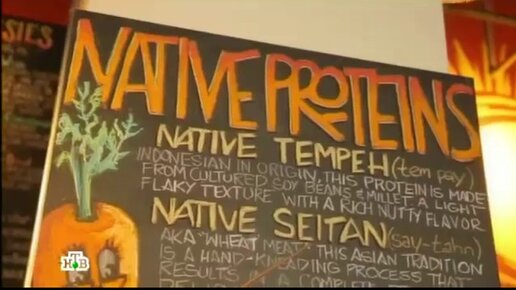 SIES
NATIVE PROTEINS
NATIVE TEMPEH (tem pay)
INDONESIAN IN ORIGIN, THIS PROTEIN IS MADE
FROM CULTURED SOY BEANS & MILLET, A LIGHT
FLAKY TEXTURE WITH A RICH NUTTY FLAVOR
NATIVE SEITAN (say-tahn)
AKA "WHEAT MEAT" THIS ASIAN TRADITION
IS A HAND-KNEADING PROCESS THAT
RESULTS IN A COMPLETE
НТВ